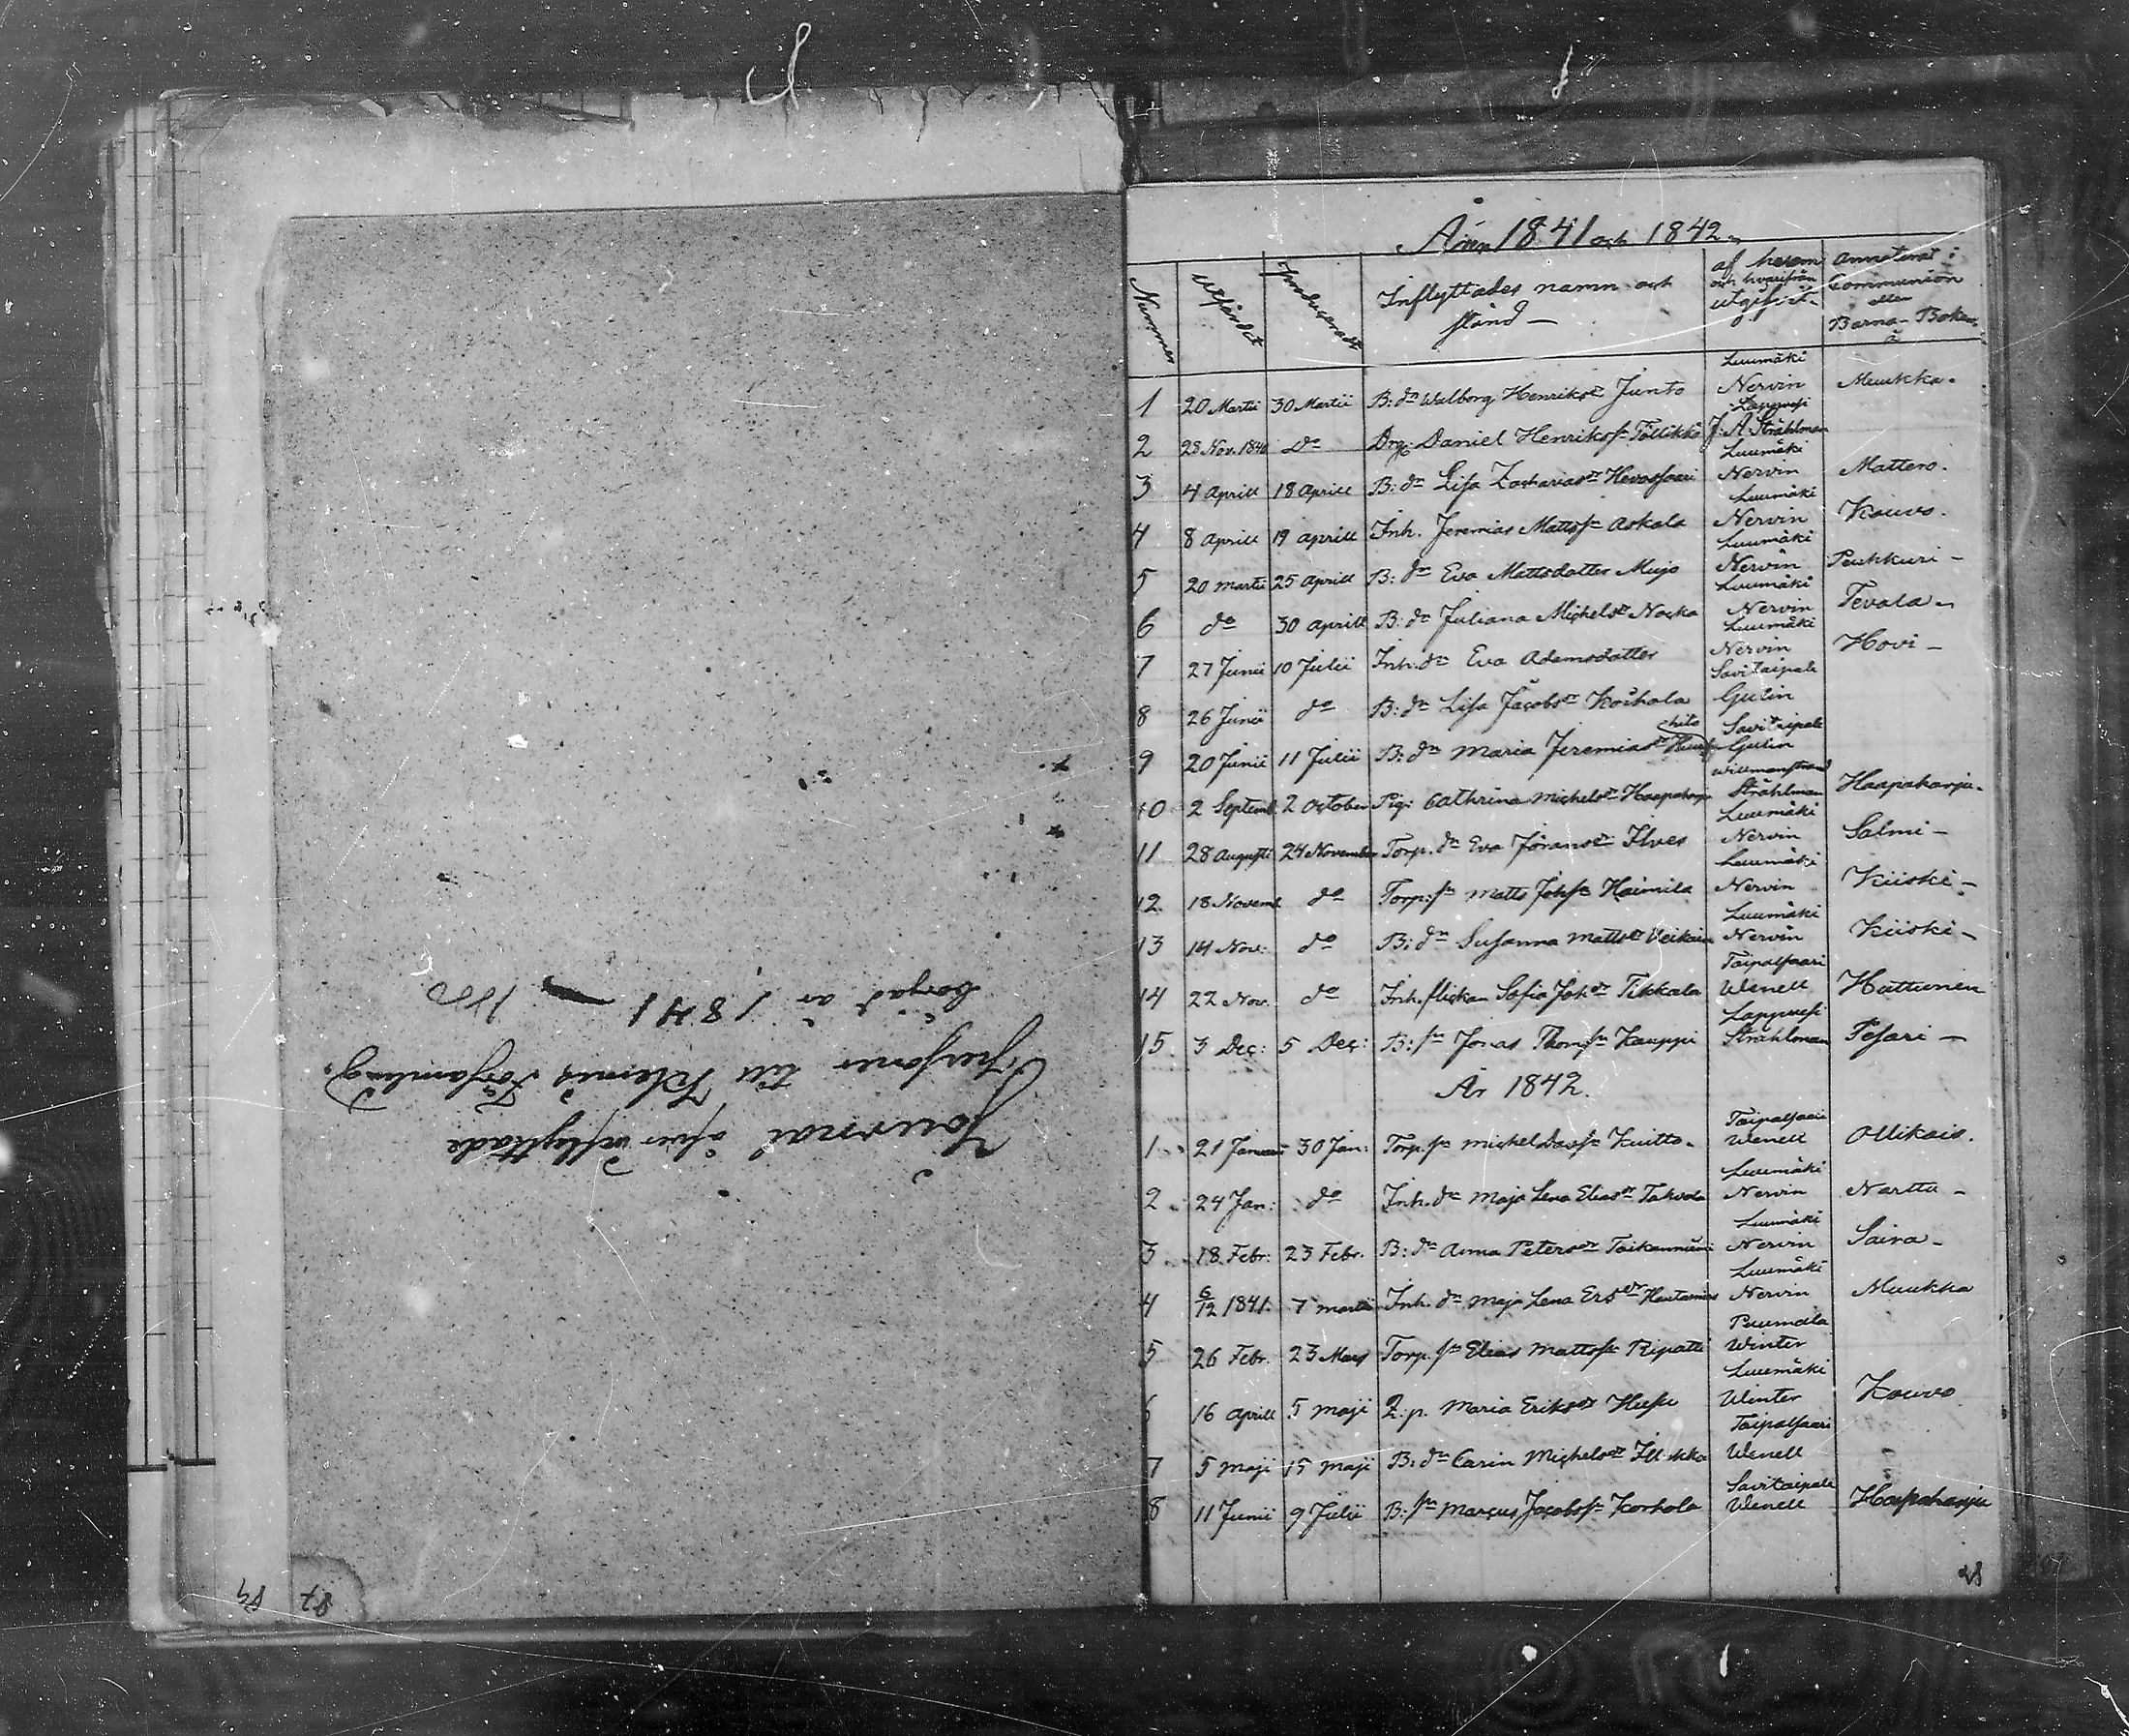 Journal öfver inflyttade
Personer till Klemis Församling,
börjad år 1841 — 1850
87
Åren 1841 och 1842.
Nummer Utfärdat Producerat Inflyttades namn och stånd — af hvem och hvarifrån utgifvit Annoterat i Communion eller Barna-Boken å
1 20 Martii 30 Martii B: dr Walborg Henriksdr Junto Luumäki Nervin Muukka.
2 28 Nov. 1840 do Drg: Daniel Henrikss. Töllikkö Lappvesi J. A. Stråhlman
3 4 Aprill 18 Aprill B: dr Lisa Zachariasdr Hevossaari Luumäki Nervin Mattero.
4 8 Aprill 19 Aprill Inh. Jeremias Mattss. Askola Luumäki Nervin Kouvo.
5 20 Martii 25 Aprill B: dr Eva Mattsdotter Mujo Luumäki Nervin Pukkuri —
6 do 30 Aprill B: dr Juliana Michelsdr Nocka Luumäki Nervin Tevala —
7 27 Junii 10 Julii Inh. dr Eva Adamsdotter Luumäki Nervin Hovi —
8 26 Junii do B: dr Lisa Jacobsdr Korhola Savitaipale Gulin
9 20 Junii 11 Julii B: dr Maria Jeremiasdr Savitaipale Gulin
10 2 Septemb. 2 October Pig: Cathrina Michelsdr Haapaharju Willmanstrand Stråhlman Haapaharju.
11 28 Augusti 24 November Torp. dr Eva Göransdr Ilves Luumäki Nervin Salmi —
12 18 Novemb. do Torp: sn Matts Johss. Haimila Luumäki Nervin Kiiski —
13 14 Nov: do B: dr Susanna Mattsdr Veikain Luumäki Nervin Kiiski —
14 22 Nov. do Inh. flickan Sofia Johdr Tikkala Taipalsaari Wenell Huttunen
15 3 Dec: 5 Dec: B: sn Jonas Thomss. Kauppi Lappvesi Stråhlman Pesari —
År 1842.
1 21 Januari 30 Jan: Torp. sn Michel Davss. Kuitto. Taipalsaari Wenell Ollikais.
2 24 Jan: do Inh. dr Maja Lena Eliasdr Takvola Luumäki Nervin Narttu —
3 18 Febr: 23 Febr. B: dr Anna Petersdr Taikanniemi Luumäki Nervin Saira —
4 6/12 1841. 7 Martii Inh. dr Maja Lena Ersdr Luumäki Nervin Muukka
5 26 Febr. 23 Mars Torp. sn Elias Mattss. Ripatti Puumala Winter
6 16 Aprill 5 Maji Maria Eriksdr Husu Luumäki Winter Kouvo
7 5 Maji 15 Maji B: dr Carin Michelsdr Illukka Taipalsaari Wenell
8 11 Junii 9 Julii B: sn Marcus Jacobss. Korhola Savitaipale Wenell Haapaharju